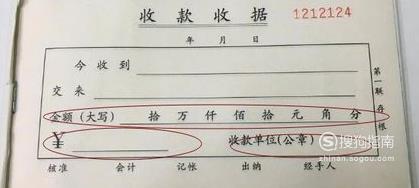 收款收据 1212124
年 月 日
今收到
交来
金额(大写) 拾 万 仟 佰 拾 元 角 分
¥ 收款单位(公章)
核准 会计 记帐 出纳 经手人
第一联 存根
搜狗指南
zhinan.sogou.com